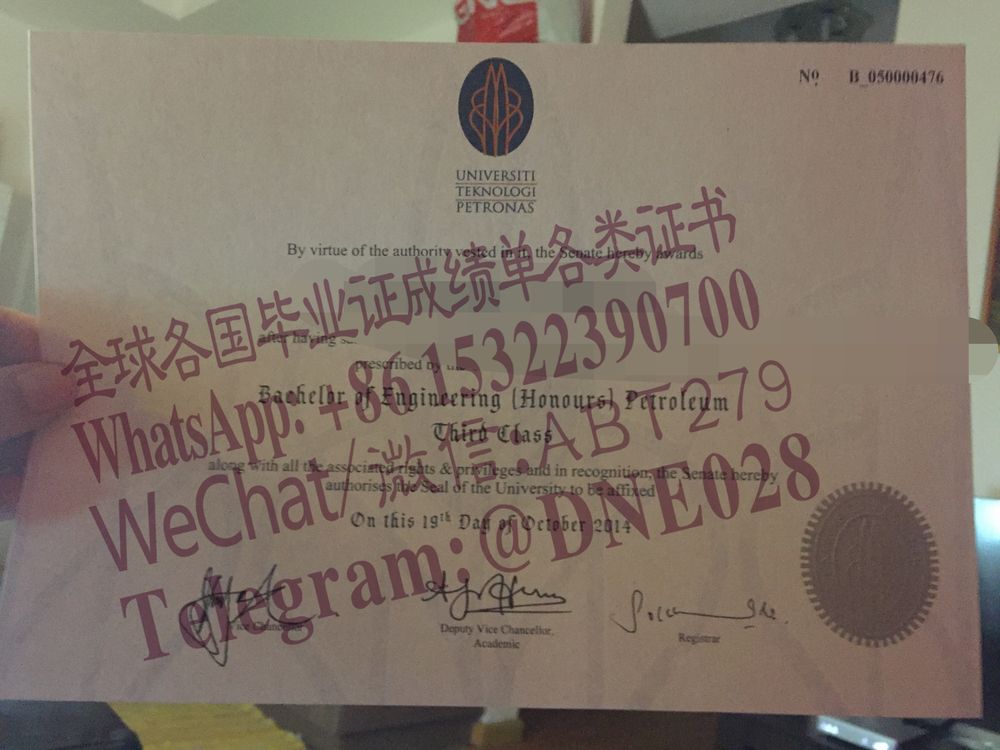 Nº B_050000476
UNIVERSITI
TEKNOLOGI
PETRONAS
By virtue of the authority vested in it, the Senate hereby awards
全球各国毕业证成绩单各类证书
after having
prescribed by
WhatsApp: +86 15322390700
Bachelor of Engineering (Honours) Petroleum
Third Class
WeChat/微信:ABT279
along with all the associated rights & privileges and in recognition, the Senate hereby
authorises the Seal of the University to be affixed
On this 19th Day of October 2014
Telegram:@DNE028
Vice Chancellor
Deputy Vice Chancellor,
Academic
Registrar